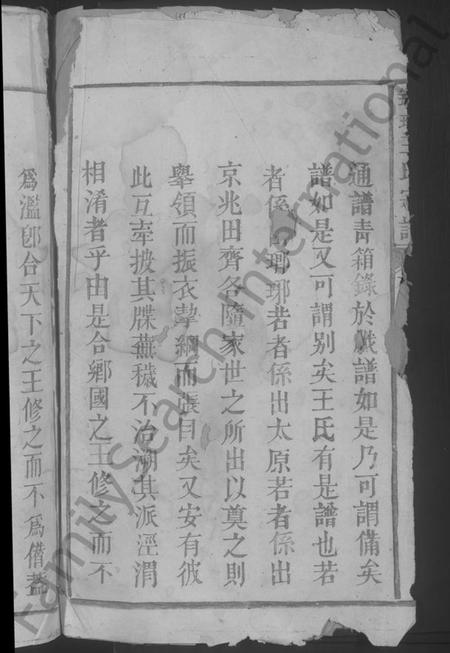 通譜青箱錄於戱譜如是乃可謂備矣
譜如是又可謂别矣王氏有是譜也若
者係出瑯琊若者係出太原若者係出
京兆田齊各隨家世之所出以奠之則
舉領而振衣挈綱而張目矣又安有彼
此互牽披其牒蕪穢不治溯其派涇渭
相淆者乎由是合鄉國之王修之而不
爲濫卽合天下之王修之而不爲僭蓋
王氏
FamilySearch International